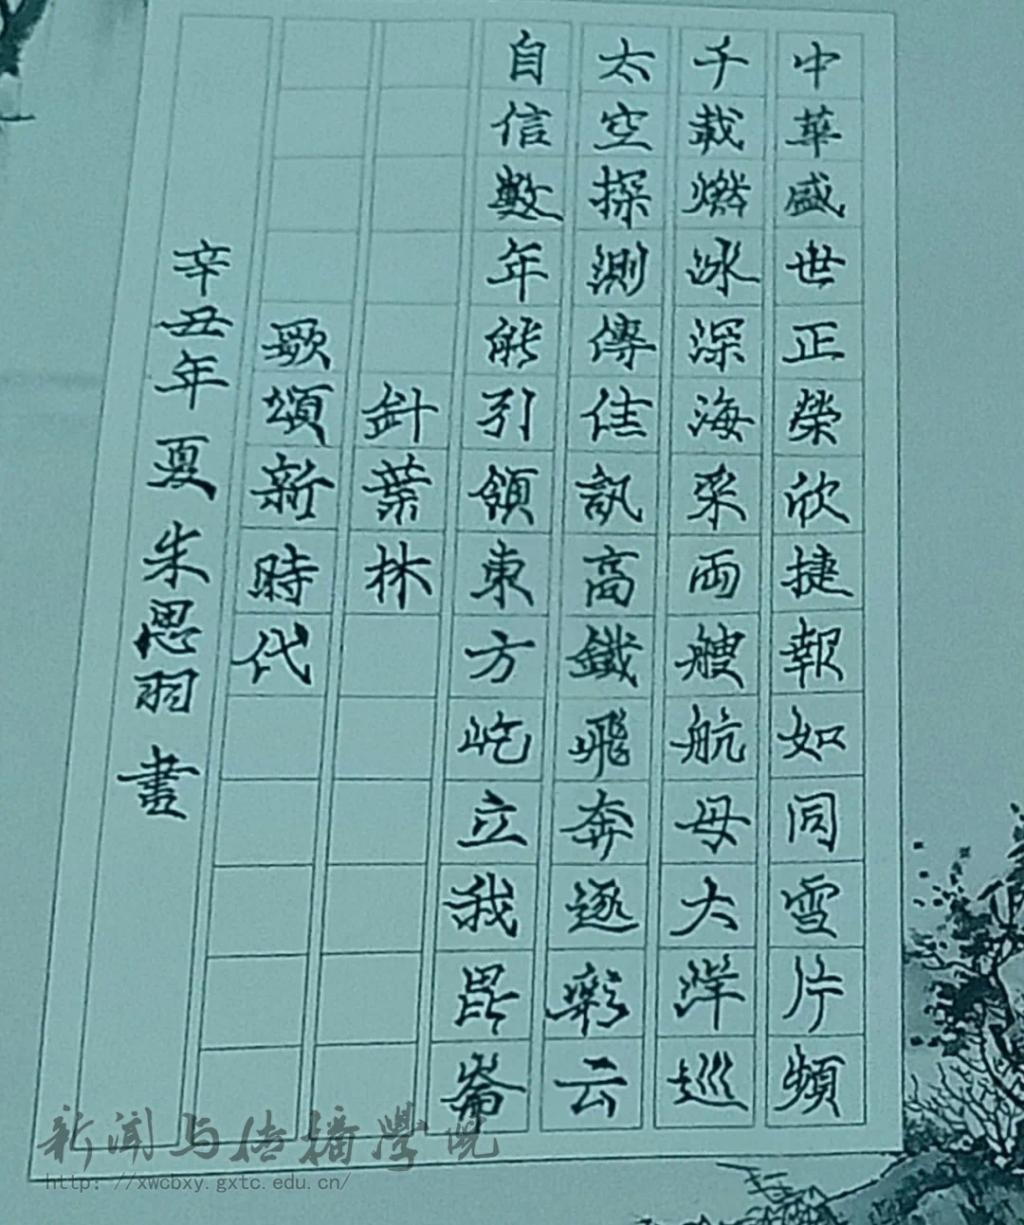 中華盛世正榮欣捷報如同雪片頻
千載燃冰深海采両艘航母大洋巡
太空探測傳佳訊高鐵飛奔逐彩云
自信數年能引領東方屹立我昆崙
針葉林
歌頌新時代
辛丑年夏朱思羽書
新闻与传播学院
http://xwcbxy.gxtc.edu.cn/